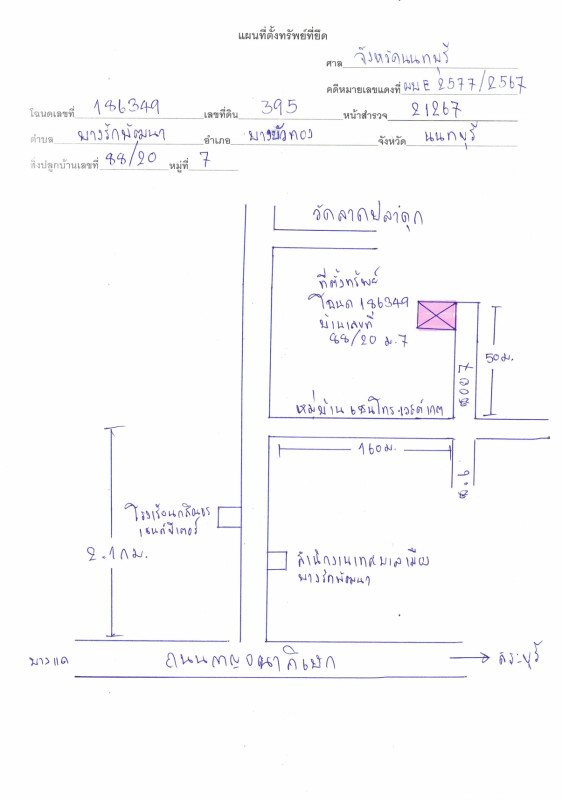 แผนที่ตั้งทรัพย์ที่ยึด
ศาล จังหวัดนนทบุรี
คดีหมายเลขแดงที่ ผบE 2577/2567
โฉนดเลขที่ 186349 เลขที่ดิน 395 หน้าสำรวจ 21267
ตำบล บางรักพัฒนา อำเภอ บางบัวทอง จังหวัด นนทบุรี
สิ่งปลูกบ้านเลขที่ 88/20 หมู่ที่ 7
วัดลาดปลาดุก
ที่ตั้งทรัพย์
โฉนด 186349
บ้านเลขที่
88/20 ม.7
50ม.
ซอย7
หมู่บ้าน เซนโทร เวสต์เกต
160ม.
ซ.6
โรงเรียนกสินธร
เซนต์ปีเตอร์
2.1กม.
สำนักงานเทศบาลเมือง
บางรักพัฒนา
บางแค
ถนนกาญจนาภิเษก
สระบุรี